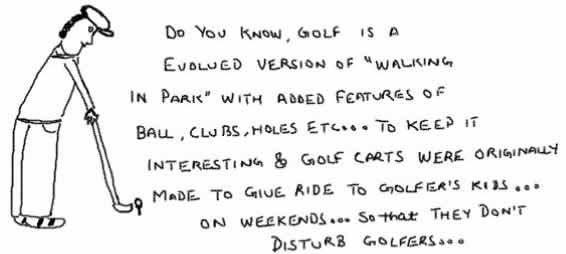 DO YOU KNOW, GOLF IS A
EVOLVED VERSION OF "WALKING
IN PARK" WITH ADDED FEATURES OF
BALL, CLUBS, HOLES ETC... TO KEEP IT
INTERESTING & GOLF CARTS WERE ORIGINALLY
MADE TO GIVE RIDE TO GOLFER'S KIDS...
ON WEEKENDS... SO that THEY DON'T
DISTURB GOLFERS...